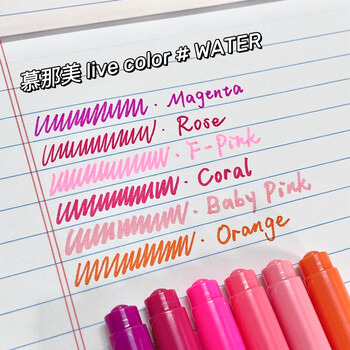 慕那美 live color # WATER
· Magenta
· Rose
· F-Pink
· Coral
· Baby Pink
· Orange